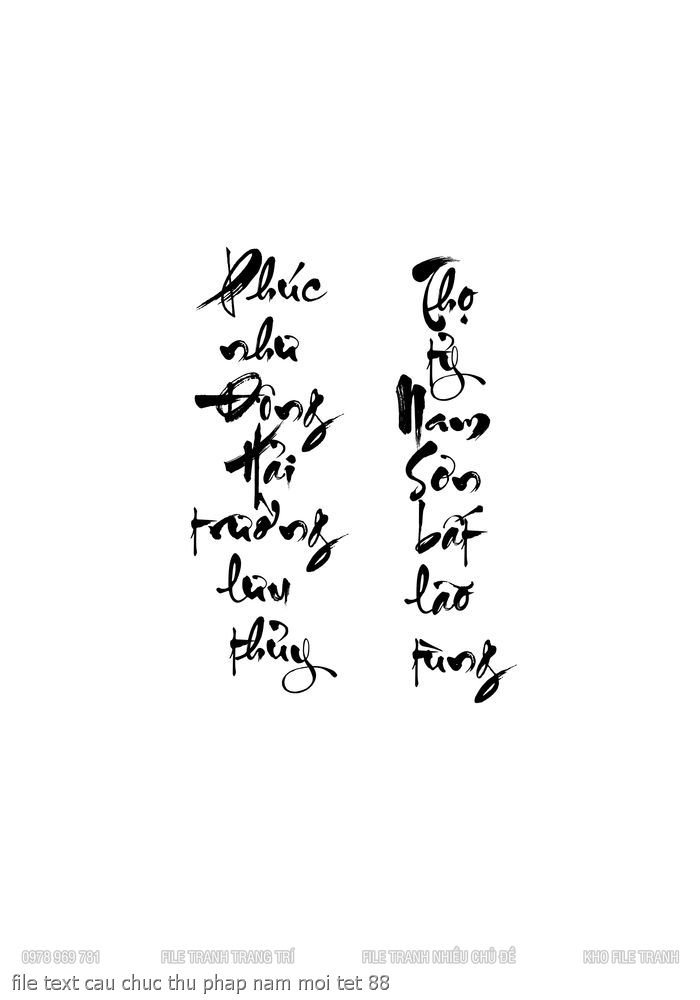 Phúc
như
Đông
Hải
trường
lưu
thủy
Thọ
tỷ
Nam
Sơn
bất
lão
tùng
0978 969 781 FILE TRANH TRANG TRÍ FILE TRANH NHIỀU CHỦ ĐỀ KHO FILE TRANH
file text cau chuc thu phap nam moi tet 88